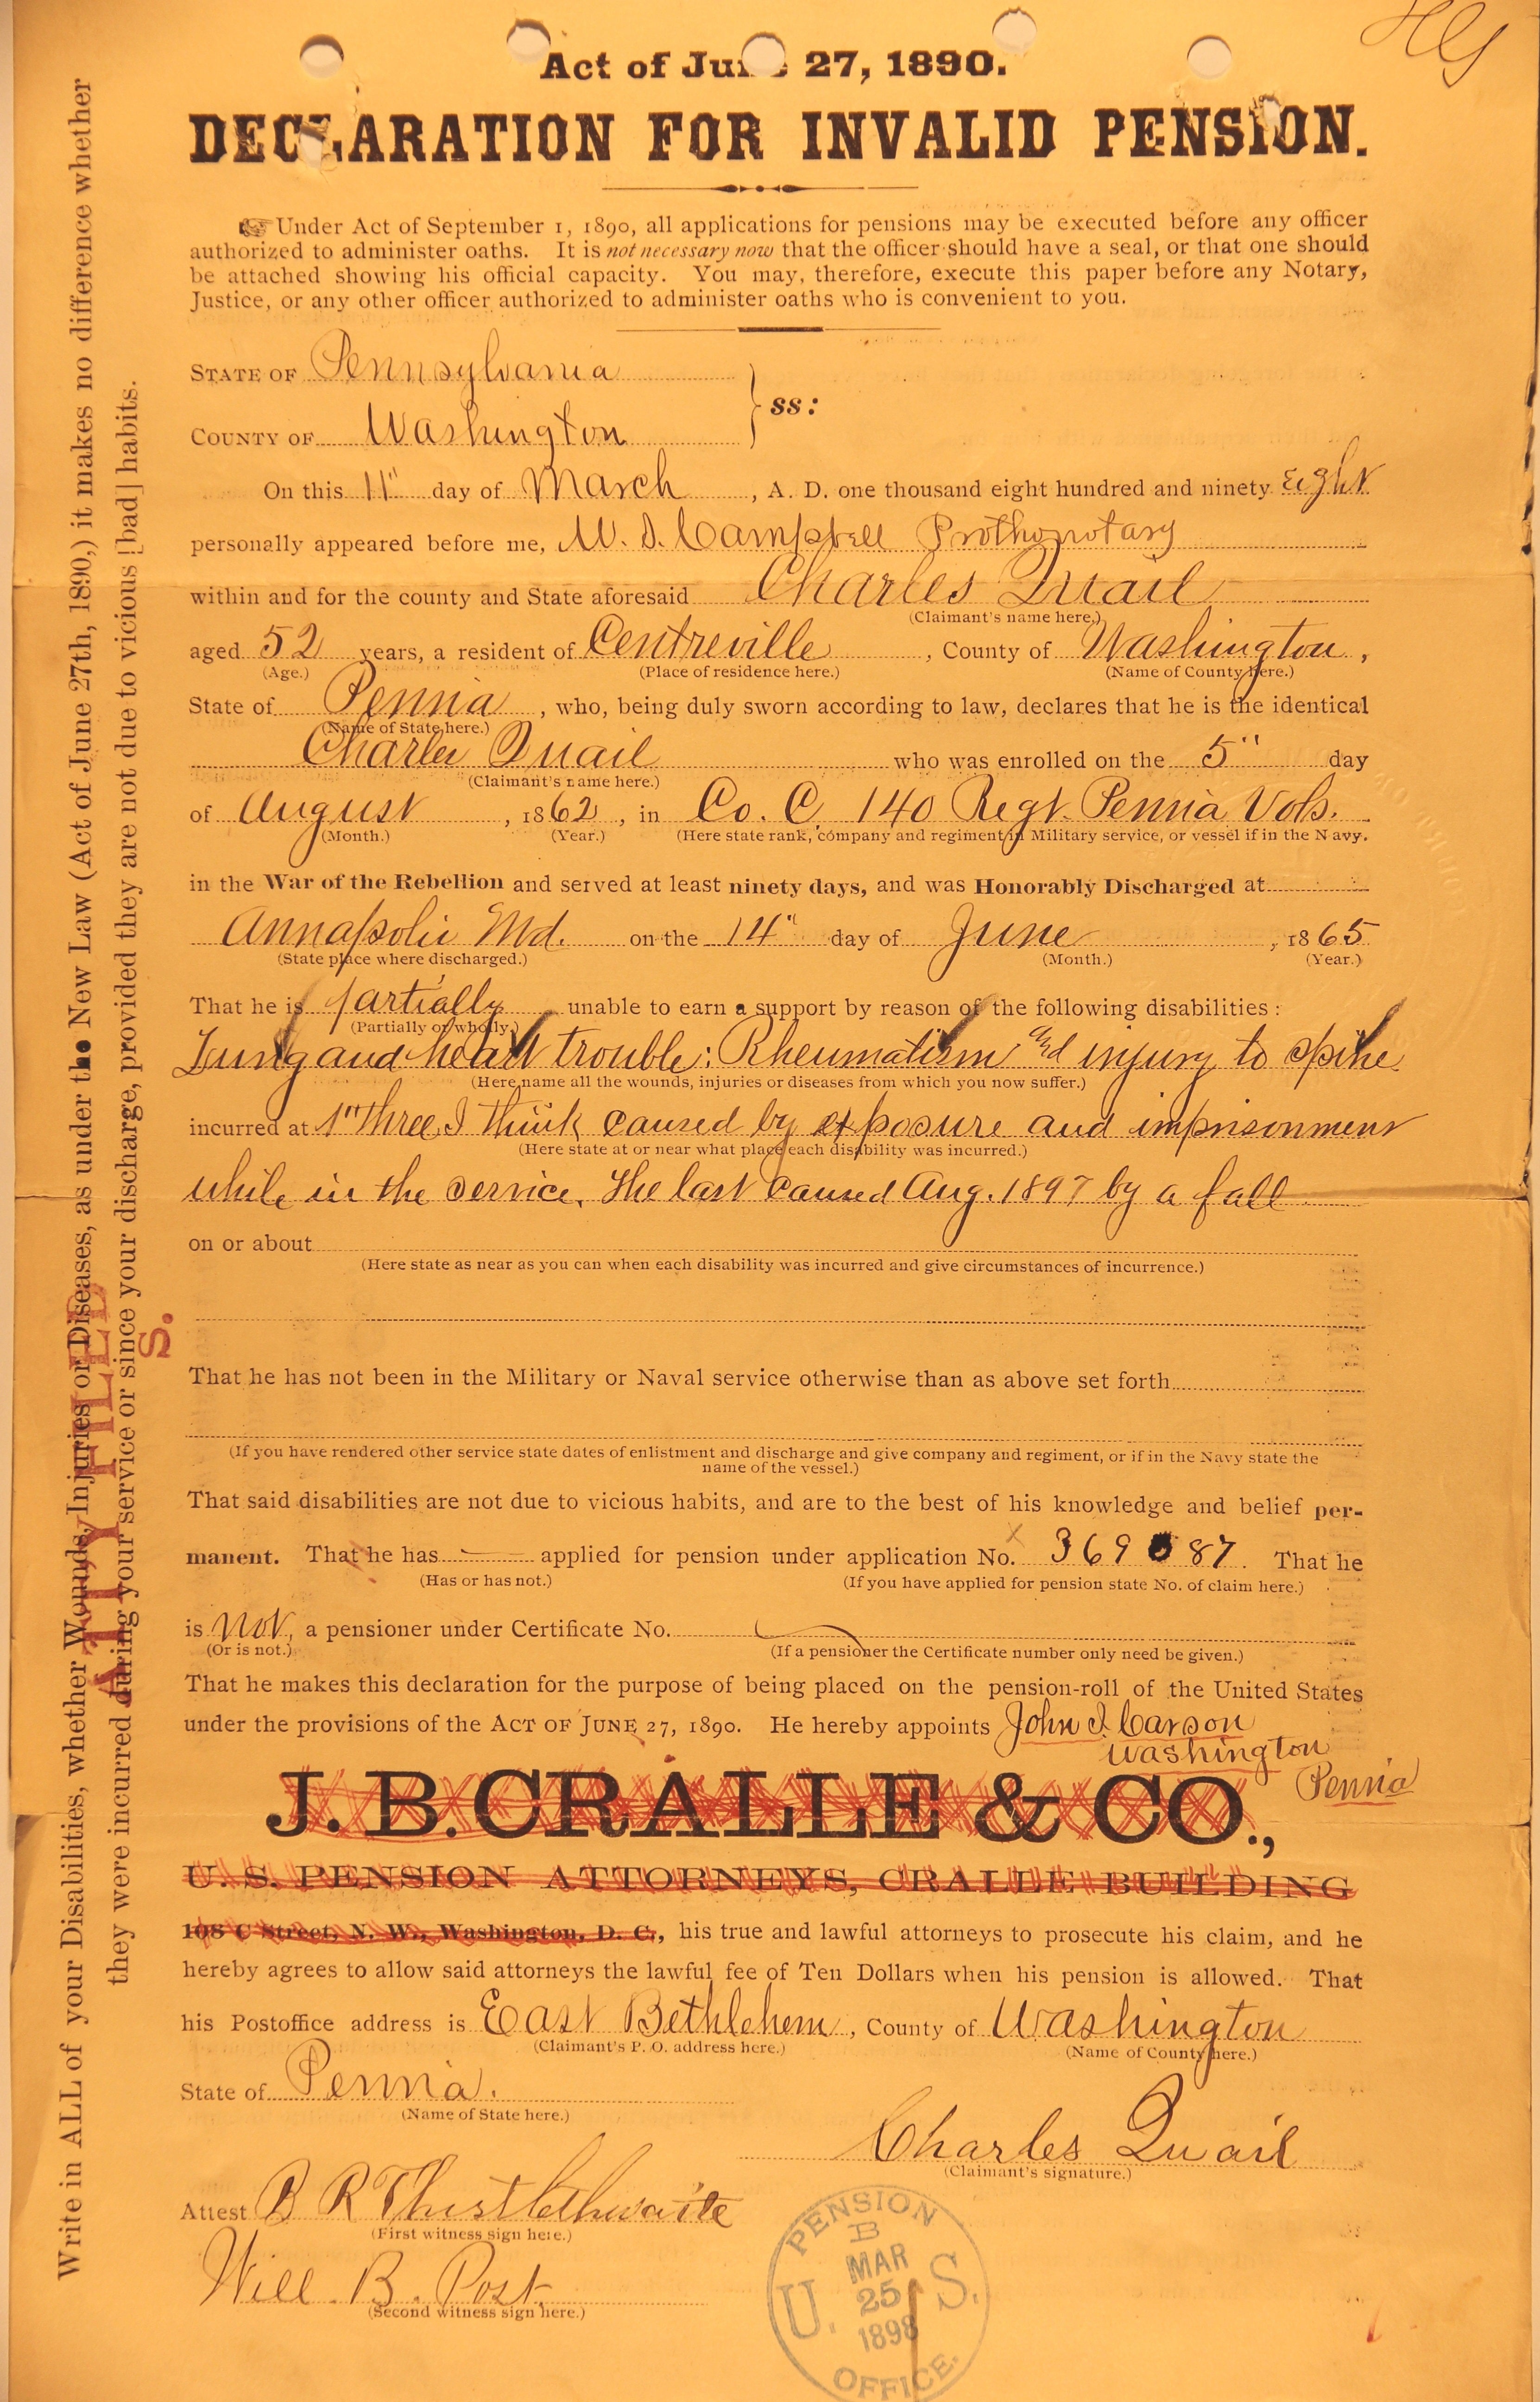 HG
Act of June 27, 1890.
DECLARATION FOR INVALID PENSION.
☞ Under Act of September 1, 1890, all applications for pensions may be executed before any officer
authorized to administer oaths. It is not necessary now that the officer should have a seal, or that one should
be attached showing his official capacity. You may, therefore, execute this paper before any Notary,
Justice, or any other officer authorized to administer oaths who is convenient to you.
STATE OF Pennsylvania
ss:
COUNTY OF Washington
On this 11" day of March, A. D. one thousand eight hundred and ninety Eight
personally appeared before me, W. D. Campbell Prothonotary
within and for the county and State aforesaid Charles Quail
(Claimant's name here.)
aged 52 years, a resident of Centreville, County of Washington,
(Age.) (Place of residence here.) (Name of County here.)
State of Penna, who, being duly sworn according to law, declares that he is the identical
(Name of State here.)
Charles Quail who was enrolled on the 5" day
(Claimant's name here.)
of August, 1862, in Co. C, 140 Regt. Penna Vols.
(Month.) (Year.) (Here state rank, company and regiment in Military service, or vessel if in the Navy.
in the War of the Rebellion and served at least ninety days, and was Honorably Discharged at
Annapolis Md. on the 14" day of June, 1865
(State place where discharged.) (Month.) (Year.)
That he is partially unable to earn a support by reason of the following disabilities:
(Partially or wholly.)
Lung and heart trouble: Rheumatism and injury to spine
(Here name all the wounds, injuries or diseases from which you now suffer.)
incurred at 1st three I think caused by exposure and imprisonment
(Here state at or near what place each disability was incurred.)
while in the service. The last caused Aug. 1897 by a fall
on or about
(Here state as near as you can when each disability was incurred and give circumstances of incurrence.)
That he has not been in the Military or Naval service otherwise than as above set forth
(If you have rendered other service state dates of enlistment and discharge and give company and regiment, or if in the Navy state the
name of the vessel.)
That said disabilities are not due to vicious habits, and are to the best of his knowledge and belief per-
manent. That he has — applied for pension under application No. 369087. That he
(Has or has not.) (If you have applied for pension state No. of claim here.)
is not, a pensioner under Certificate No.
(Or is not.) (If a pensioner the Certificate number only need be given.)
That he makes this declaration for the purpose of being placed on the pension-roll of the United States
under the provisions of the ACT OF JUNE 27, 1890. He hereby appoints John I. Carson
Washington
Penna
J. B. CRALLE & CO.,
U. S. PENSION ATTORNEYS, CRALLE BUILDING
108 C Street, N. W., Washington, D. C., his true and lawful attorneys to prosecute his claim, and he
hereby agrees to allow said attorneys the lawful fee of Ten Dollars when his pension is allowed. That
his Postoffice address is East Bethlehem, County of Washington
(Claimant's P. O. address here.) (Name of County here.)
State of Penna.
(Name of State here.)
Charles Quail
(Claimant's signature.)
Attest B R Thistlethwaite
(First witness sign here.)
Will. B. Post.
(Second witness sign here.)
PENSION
B
MAR
25
1898
U. S.
OFFICE.
Write in ALL of your Disabilities, whether Wounds, Injuries or Diseases, as under the New Law (Act of June 27th, 1890,) it makes no difference whether
they were incurred during your service or since your discharge, provided they are not due to vicious [bad] habits.
ATTY FILED
S.